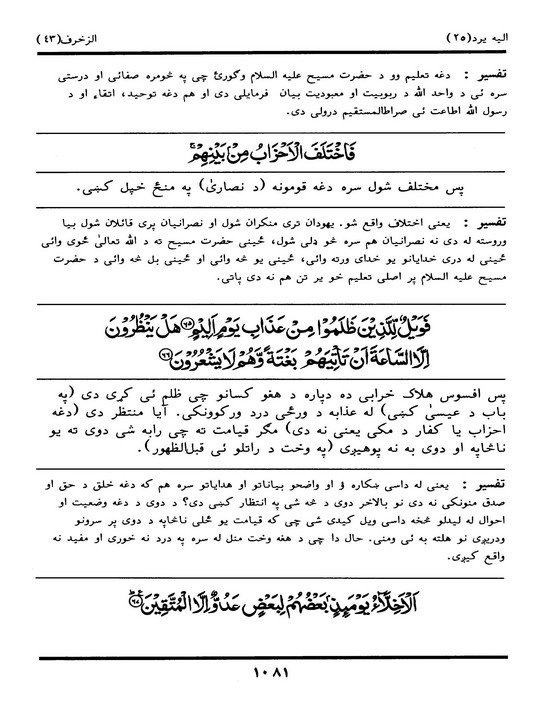 الیه یرد(۲۵)
الزخرف(۴۳)
تفسیر : دغه تعلیم وو د حضرت مسیح علیه السلام وګورئ چی په څومره صفائی او درستی
سره ئی د واحد الله د ربوبیت او معبودیت بیان فرمایلی دی او هم دغه توحید، اتقاء او د
رسول الله اطاعت ئی صراط‌المستقیم درولی دی.
فَاخْتَلَفَ الْاَحْزَابُ مِنْ بَیْنِهِمْ ۚ
پس مختلف شول سره دغه قومونه (د نصاریٰ) په منځ خپل کښی.
تفسیر : یعنی اختلاف واقع شو. یهودان تری منکران شول او نصرانیان پری قائلان شول بیا
وروسته له دی نه نصرانیان هم سره څو ډلی شول، ځینی حضرت مسیح ته د الله تعالیٰ ځوی وائی
ځینی له دری خدایانو یو خدای ورته وائی، ځینی یو څه وائی او ځینی بل څه وائی د حضرت
مسیح علیه السلام پر اصلی تعلیم خو یر تن هم نه دی پاتی.
فَوَیْلٌ لِّلَّذِیْنَ ظَلَمُوْا مِنْ عَذَابِ یَوْمٍ اَلِیْمٍ ﴿۶۵﴾ هَلْ یَنْظُرُوْنَ
اِلَّا السَّاعَةَ اَنْ تَاْتِیَهُمْ بَغْتَةً وَّهُمْ لَا یَشْعُرُوْنَ ﴿۶۶﴾
پس افسوس هلاک خرابی ده دپاره د هغو کسانو چی ظلم ئی کړی دی (په
باب د عیسیٰ کښی) له عذابه د ورځی درد ورکوونکی. آیا منتظر دی (دغه
احزاب یا کفار د مکی یعنی نه دی) مګر قیامت ته چی رابه شی دوی ته یو
ناڅاپه او دوی به نه پوهیږی (په وخت د راتلو ئی قبل‌الظهور).
تفسیر : یعنی له داسی ښکاره ؤ او واضحو بیاناتو او هدایاتو سره هم که دغه خلق د حق او
صدق منونکی نه دی نو بالاخر دوی د څه شی په انتظار کښی دی؟ د دوی د دغه وضعیت او
احوال له لیدلو څخه داسی ویل کیدی شی چی که قیامت یو ځلی ناڅاپه د دوی پر سرونو
ودریږی نو هلته به ئی ومنی. حال دا چی د هغه وخت منل له سره په درد نه خوری او مفید نه
واقع کیږی.
اَلْاَخِلَّآءُ یَوْمَىِٕذٍۭ بَعْضُهُمْ لِبَعْضٍ عَدُوٌّ اِلَّا الْمُتَّقِیْنَ
۱۰۸۱